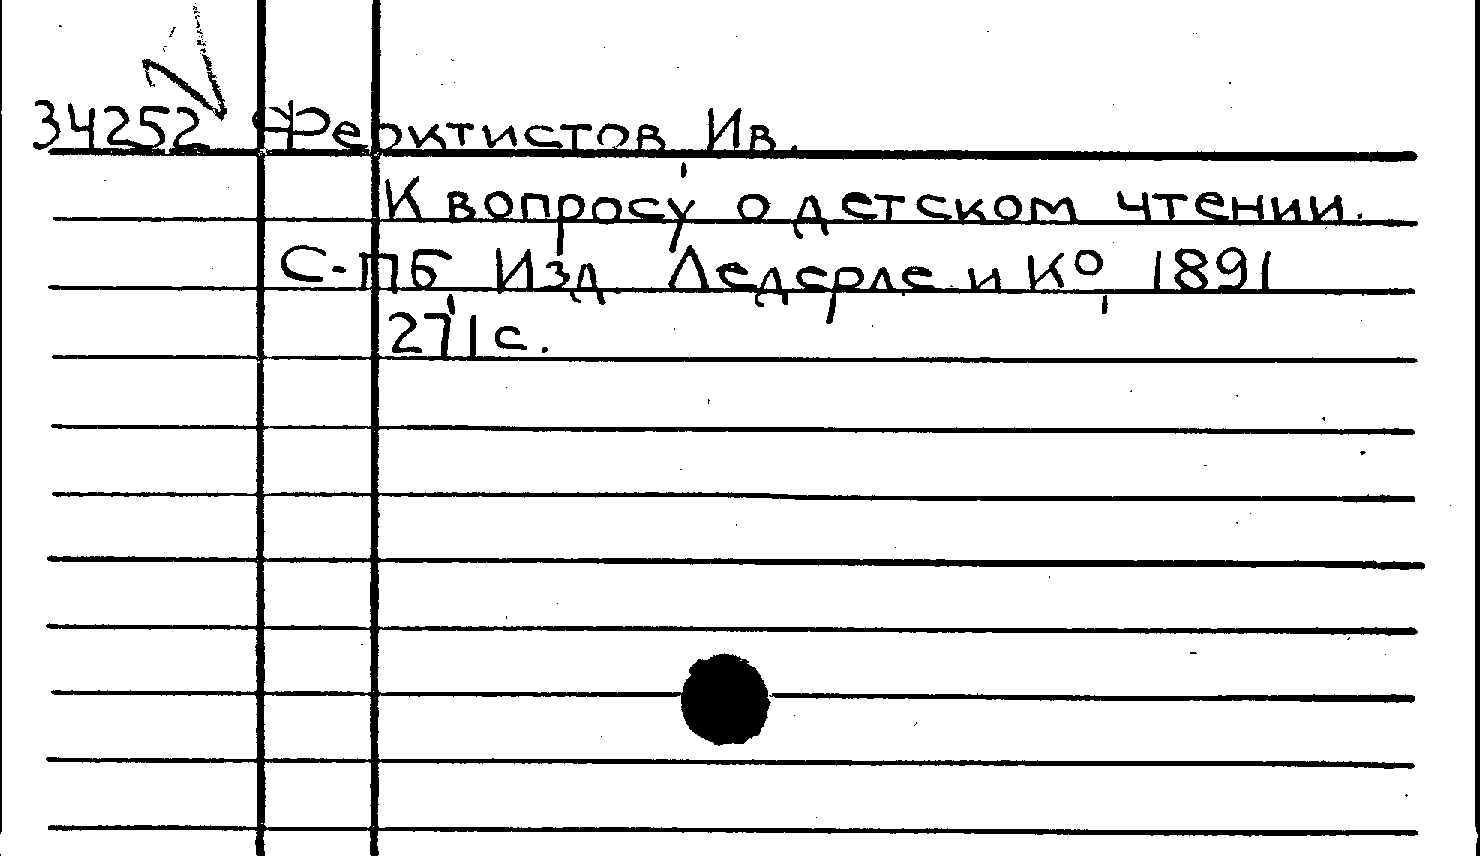 34252 Феоктистов, Ив.
К вопросу о детском чтении.
С-ПБ, Изд. Ледерле и К⁰, 1891
271 с.